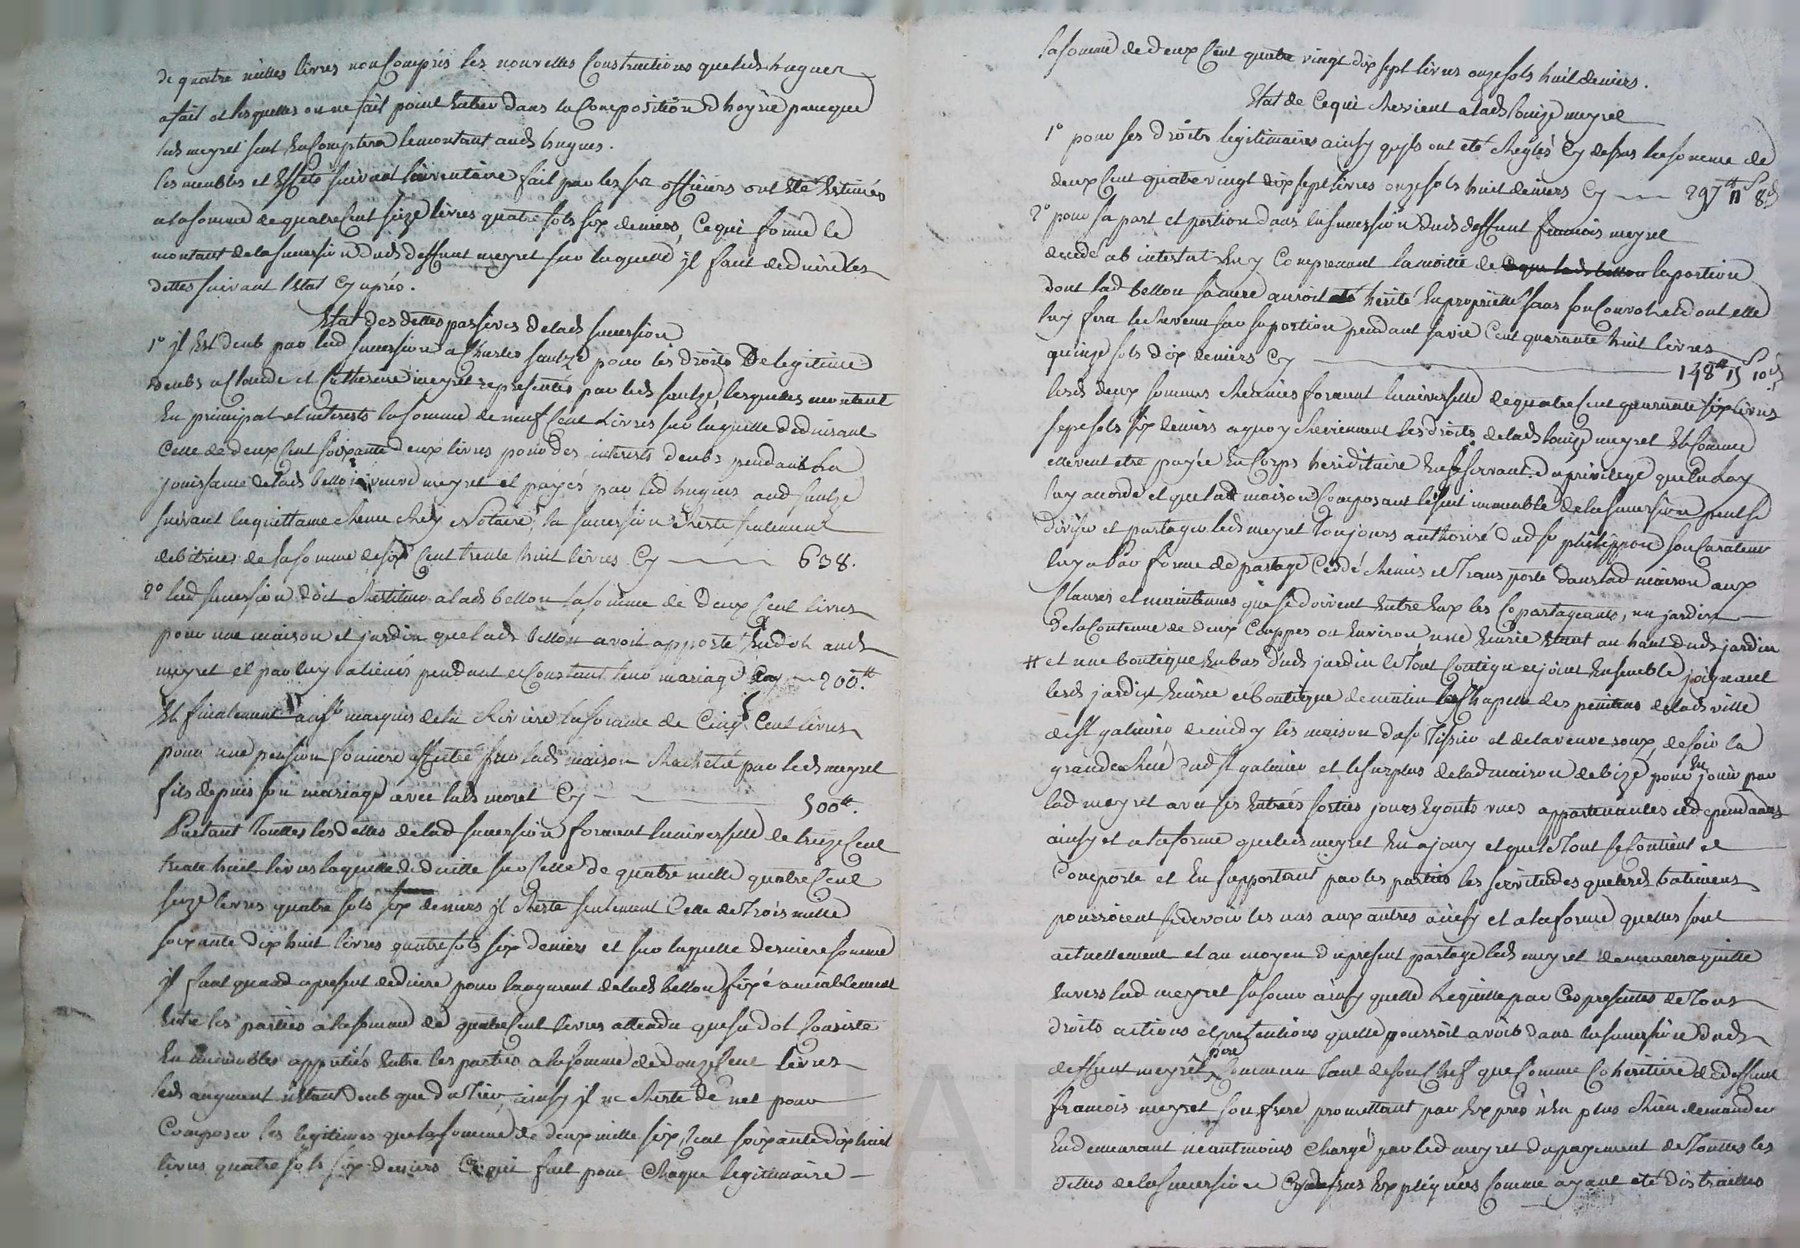 de quatre milles livres non Compris les nouvelles Constructions queledt huguer
a fait et lesquelles on ne fait point Entrer dans la Composition d'hoyrie parceque
ledt meyret sent En Compter le montant audt hugues.
les meubles et Effets suivant linventaire fait par les srs officiers ont Eté Estimés
a la somme de quatre Cent seize livres quatre sols six deniers, Ce qui forme le
montant de la succession dudt deffunt meyret sur laquelle jl faut dedurire les
dettes suivant l'etat Cy après.
Etat des dettes passives de ladt succession
1° jl Est deub par lad succession a Charles sauzé pour les droits De legitime
deubs a Claude et Catherine meyret representés par ledt sauzé, lesquelles montent
En principal et interests la somme de neuf Cent Livres sur laquelle deduisant
Celle de deux Cent soixante deux livres pour des interests deubs pendant la
jouissance de ladt bellon veuve meyret et payés par led hugues aud sauzé
suivant la quittance Notaire, la succession Reste seulement
debitrice de la somme de six Cent trente huit livres Cy —— 638.
2° lad succession doit Restituer a ladt bellon la somme de deux Cent livres
pour une maison et jardin que ladt bellon avoit apporté En dot audt
meyret et par luy aliénés pendant et Constant leur mariage Cy — 200.tt
Et finalement marquis de la Riviere la somme de Cinq Cent livres
pour une pension fonciere affectée sur ladt maison Racheté par ledt meyret
fils depuis son mariage avec ladt moret Cy —— 500tt.
Partant Touttes les dettes de lad succession forment luniverselle de treize Cent
trente huit livres laquelle deduitte sur Celle de quatre mille quatre Cent
seize livres quatre sols six deniers jl Reste seulement Celle de Trois mille
soixante dix huit livres quatre sols six deniers et sur laquelle derniere somme
jl faut quand a present deduire pour laugment de ladt bellon fixé amiablement
Entre les parties a la somme de quatre Cent livres attendu que sa dot Consiste
En immeubles appretiés Entre les parties a la somme de douze Cent livres
ledt augment n'étant deub que du Tier, ainsy jl ne Reste de net pour
Composer les legitimes que la somme de deux mille six Cent soixante dix huit
livres quatre sols six deniers Ce qui fait pour Chaque legitimaire —
la somme de deux Cent quatre vingt dix sept livres onze sols huit deniers.
Etat de Ce qui Revient a ladt Louise meyret
1° pour ses droits legitimaires ainsy qu'ils ont eté Reglés Cy dessus la somme de
deux Cent quatre vingt dix sept livres onze sols huit deniers Cy —— 297tt 11s 8d
2° pour sa part et portion dans la succession dudt deffunt francois meyret
decedé ab intestat En y Comprenant la moitié de la portion
dont lad bellon sa mere auroit hérité En proprieté sans son Convol et dont elle
luy fera le Revenu sur sa portion pendant sa vie Cent quarante huit livres
quinze sols dix deniers Cy —— 148tt 15s 10d
lesdt deux sommes Reunies forment luniverselle de quatre Cent quarante six livres
sept sols six deniers a quoy Reviennent les droits de ladt Louise meyret Et Comme
elle veut etre payée En Corps héréditaire En se servant du privilege que la Loy
luy accorde et que lad maison Composant le seul immeuble de la succession peut se
diviser et partager ledt meyret Toujours authorisé dudt sr philippon son Curateur
luy a par forme de partage Cédé Remis et Transporté dans lad maison aux
Clauses et maintenues que se doivent Entre Eux les Copartageants, un jardin
de la Contenue de deux Couppes ou Environ une Ecurie étant au haut dudt jardin
# et une boutique En bas dudt jardin le Tout Contigu et joint Ensemble joignant
lesdt jardin Ecurie et boutique de matin la Chapelle des penitens de ladt ville
de st galmier de midy les maison du sr Tissier et de la veuve roux, de soir la
grande Rue dudt st galmier et le surplus de lad maison de bize pour En jouir par
lad meyret avec ses Entrées sorties jours Egouts vues appartenances et dependances
ainsy et a la forme que ledt meyret En a jouy et que le Tout se Contient et
Comporte et En supportant par les parties les servitudes que lesdt batimens
pourroient se devoir les uns aux autres ainsy et a la forme quelles sont
actuellement et au moyen du present partage ledt meyret demeurera quitte
Envers lad meyret sa soeur ainsy quelle le quitte par Ces presentes de Tous
droits actions et pretentions quelle pourroit avoir dans la succession dudt
deffunt meyret père Commun Tant de son Chef que Comme Cohéritiere dud deffunt
francois meyret son frere promettant par Exprès n'En plus Rien demander
En demeurant neantmoins Chargé par led meyret du payement de Touttes les
dettes de la succession Cy dessus Expliquées Comme ayant eté distraittes